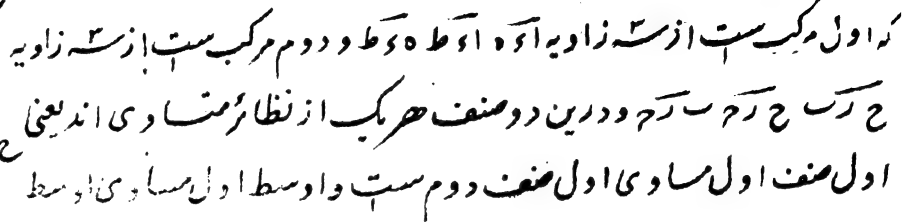 که اول مرکب ست از سه زاویه اءه اءط هءط و دوم مرکب ست از سه زاویه
ح ر ب ح ر ج ب ر ج و درین دو صنف هر یک از نظائر متساوی اند یعنی
اول صنف اول مساوی اول صنف دوم ست و اوسط اول مساوی اوسط